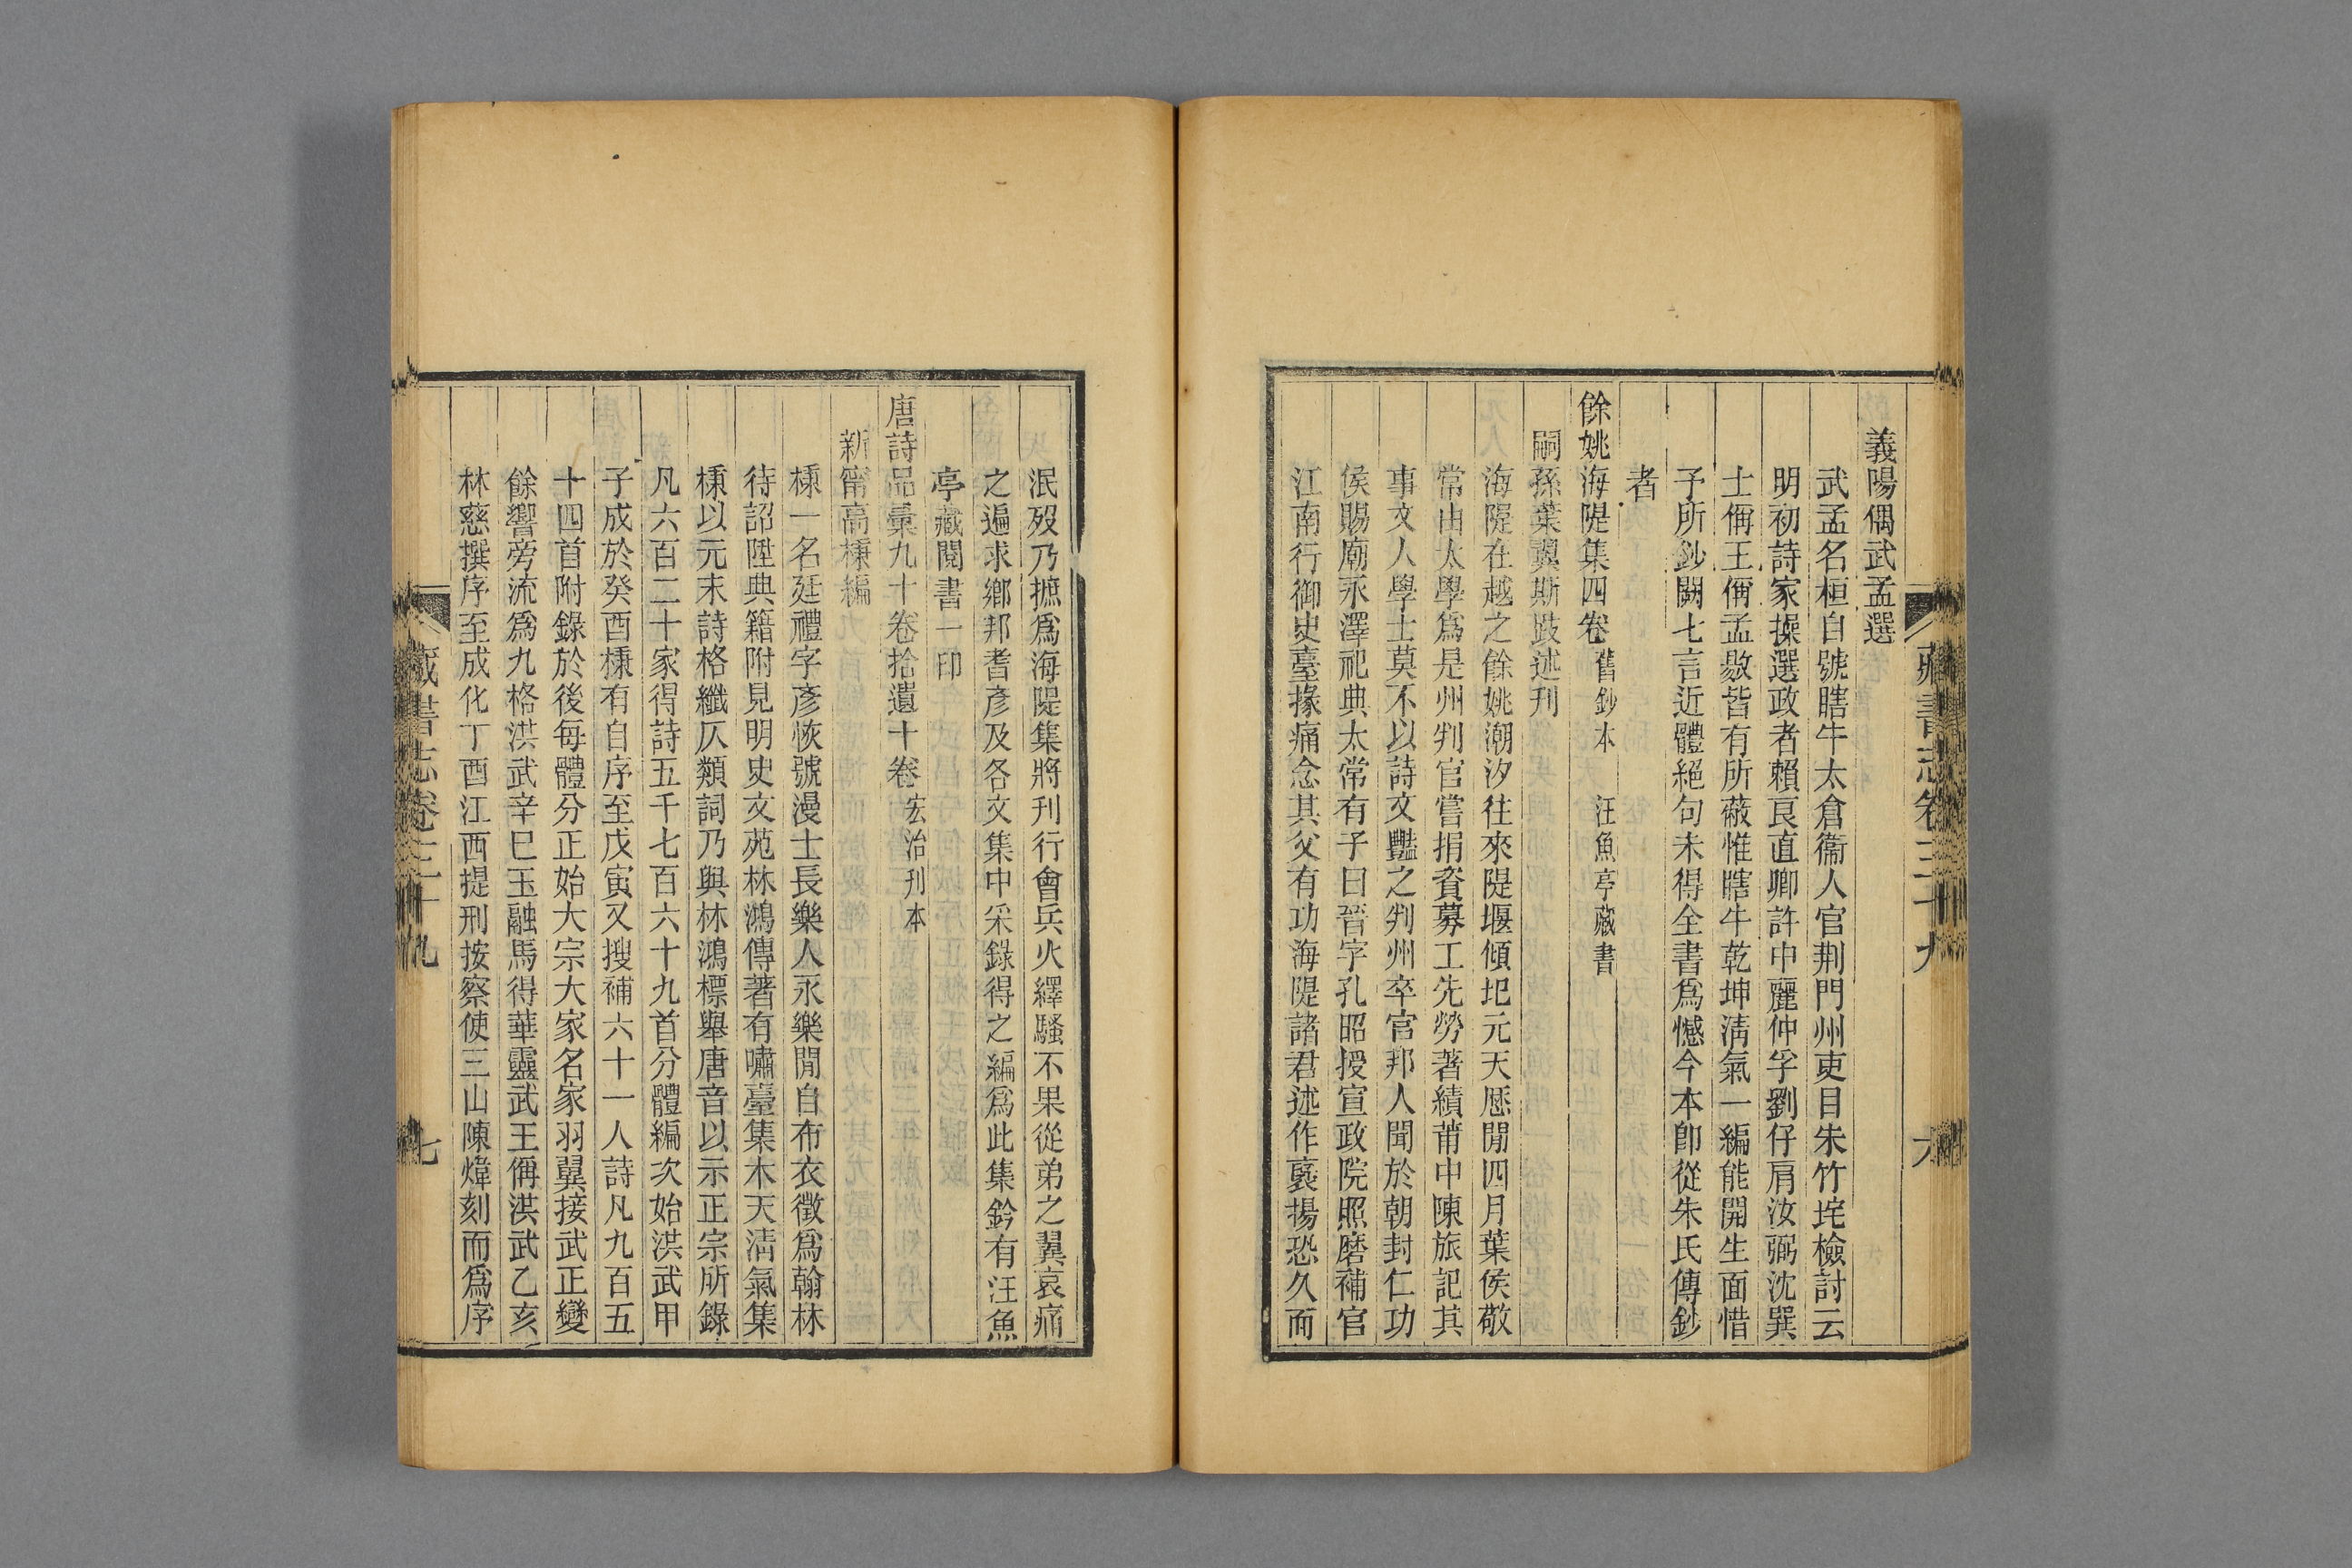 義陽偶武孟選
武孟名桓自號瞎牛太倉衞人官荆門州吏目朱竹垞檢討云
明初詩家操選政者賴良直卿許中麗仲孚劉仔肩汝弼沈巽
士偁王偁孟敭皆有所蔽惟瞎牛乾坤淸氣一編能開生面惜
予所鈔闕七言近體絕句未得全書爲憾今本卽從朱氏傳鈔
者
餘姚海隄集四卷 舊鈔本 汪魚亭藏書
嗣孫葉翼斯敱述刊
海隄在越之餘姚潮汐往來隄堰傾圯元天厯閒四月葉侯敬
常由太學爲是州判官嘗捐資募工先勞著績莆中陳旅記其
事文人學士莫不以詩文豔之判州卒官邦人聞於朝封仁功
侯賜廟永澤祀典太常有子曰晉字孔昭授宣政院照磨補官
江南行御史臺掾痛念其父有功海隄諸君述作襃揚恐久而
藏書志卷三十九
六
泯歿乃摭爲海隄集將刊行會兵火繹騷不果從弟之翼哀痛
之遍求鄉邦耆彥及各文集中采錄得之編爲此集鈐有汪魚
亭藏閱書一印
唐詩品彙九十卷拾遺十卷 宏治刊本
新甯高棅編
棅一名廷禮字彥恢號漫士長樂人永樂閒自布衣徵爲翰林
待詔陞典籍附見明史文苑林鴻傳著有嘯臺集木天淸氣集
棅以元末詩格纖仄類詞乃與林鴻標舉唐音以示正宗所錄
凡六百二十家得詩五千七百六十九首分體編次始洪武甲
子成於癸酉棅有自序至戊寅又搜補六十一人詩凡九百五
十四首附錄於後每體分正始大宗大家名家羽翼接武正變
餘響旁流爲九格洪武辛巳玉融馬得華靈武王偁洪武乙亥
林慈撰序至成化丁酉江西提刑按察使三山陳煒刻而爲序
藏書志卷三十九
七